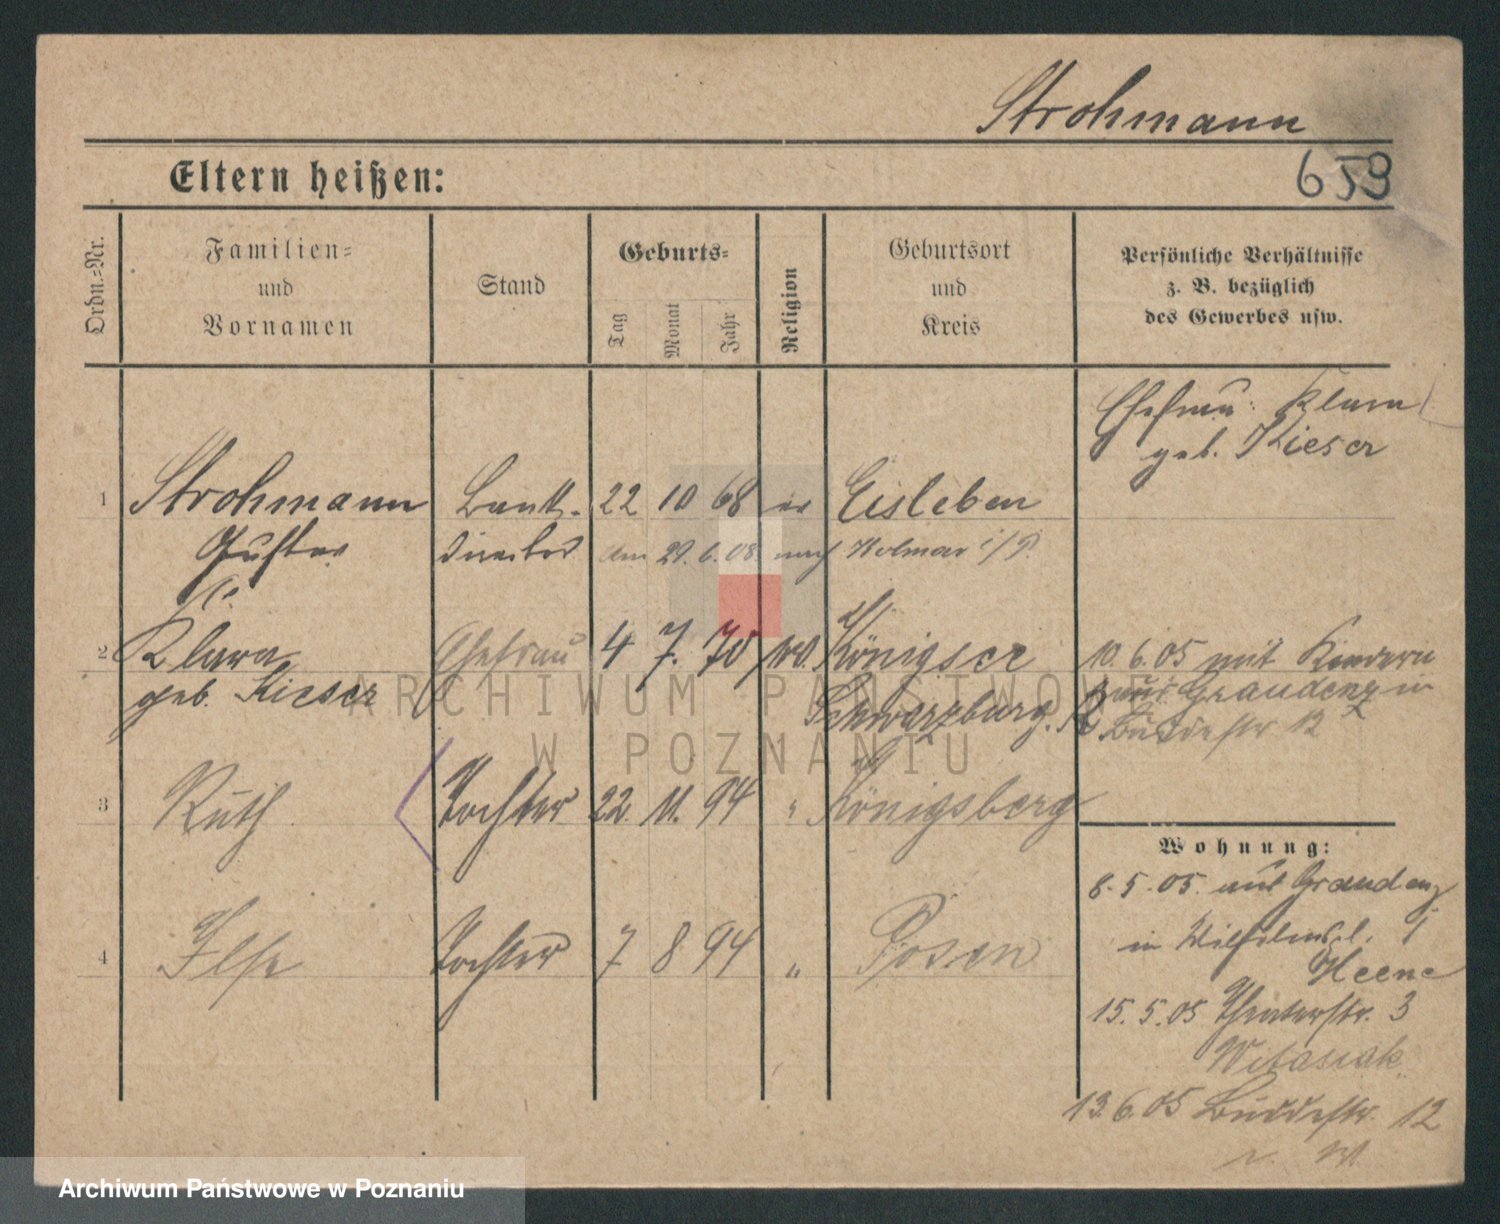 Strohmann
Eltern heißen:
659
Ordn.-Nr.
Familien-
und
Vornamen
Stand
Geburts-
Tag
Monat
Jahr
Religion
Geburtsort
und
Kreis
Persönliche Verhältnisse
z. B. bezüglich
des Gewerbes usw.
Ehefrau: Klara
geb. Kieser
1 Strohmann Bank- 22 10 68 ev Eisleben
Gustav direktor am 29. 6. 08 nach Kolmar i/P.
2 Klara Ehefrau 4 7. 70 Königsee
geb. Kieser Schwarzburg. R
10.6.05 mit Kindern
aus Graudenz in
Buddestr 12
3 Ruth Tochter 22. 11. 94 " Königsberg
4 Ilse Tochter 7 8 94 " Posen
Wohnung:
8.5.05 aus Graudenz
in Wilhelmspl.
Heene
15.5.05 Theaterstr. 3
Witasiak
13.6.05 Buddestr. 12
ARCHIWUM PAŃSTWOWE
W POZNANIU
Archiwum Państwowe w Poznaniu